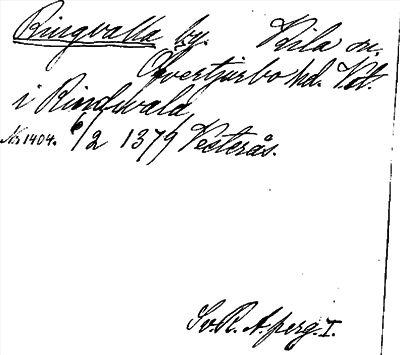 Ringvalla by. Kila sn.
Övertjurbo hd. Vstm.
i Ringwala
No 1404. 6/2 1379 Vesterås.
Sv. R. A. perg. I.